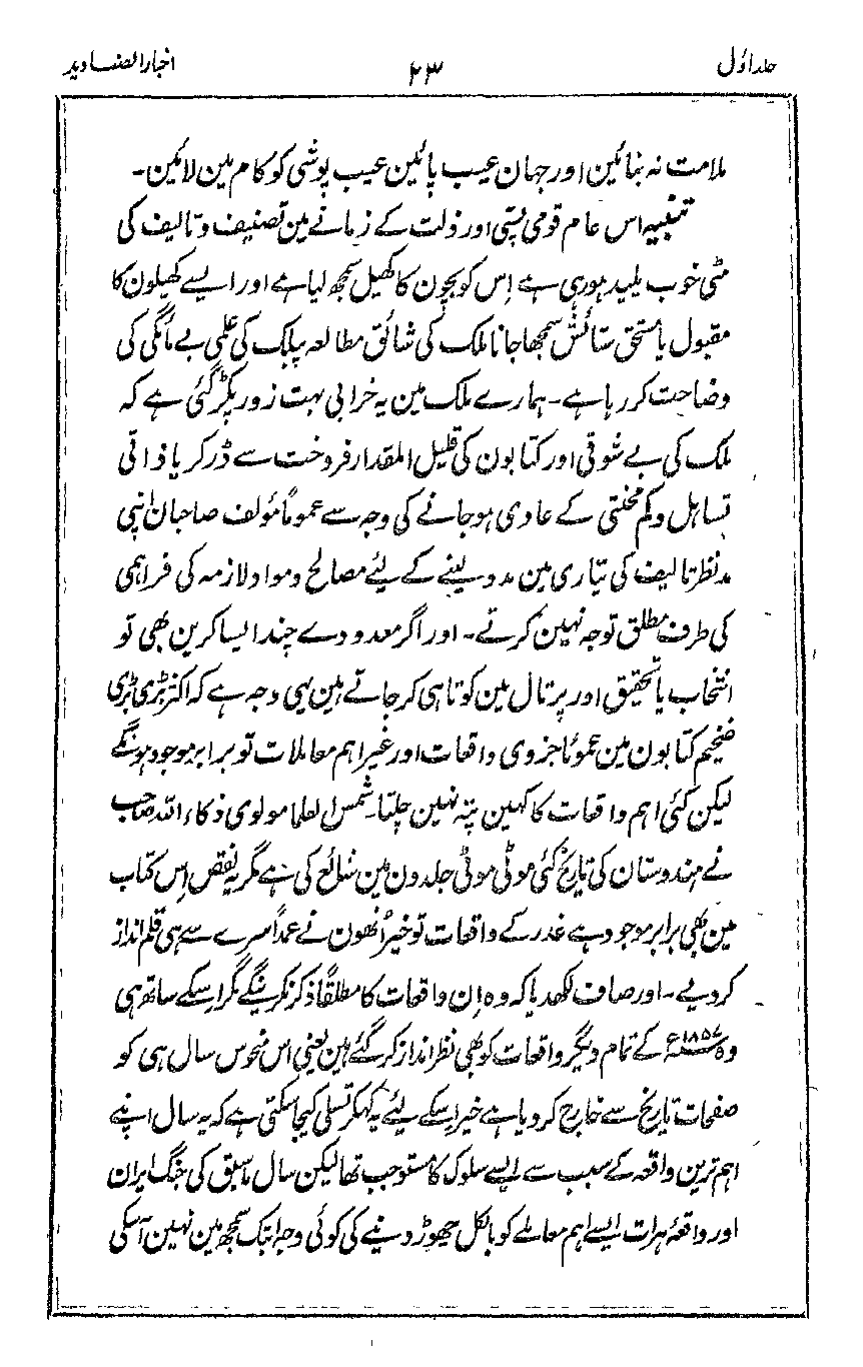 جلد اوّل ۲۳ اخبار الصنادید
ملامت نہ بنائین اور جہان عیب پائین عیب پوشی کو کام مین لائین۔
تنبیہ اس عام قومی پستی اور ذلت کے زمانے مین تصنیف و تالیف کی
مٹی خوب پلید ہورہی ہے اِس کو بچون کا کھیل سمجھ لیا ہے اور ایسے کھیلون کا
مقبول یا مستحق ستائش سمجھا جانا ملک کی شائق مطالعہ پبلک کی علمی بے مائگی کی
وضاحت کررہا ہے۔ ہمارے ملک مین یہ خرابی بہت زور پکڑ گئی ہے کہ
ملک کی بے شوقی اور کتابون کی قلیل المقدار فروخت سے ڈر کر یا ذاتی
تساہل و کم محنتی کے عادی ہوجانے کی وجہ سے عموماً مؤلف صاحبان اپنی
مدنظر تالیف کی تیاری مین مدد لینے کے لیئے مصالح و مواد لازمہ کی فراہمی
کی طرف مطلق توجہ نہین کرتے۔ اور اگر معدودے چند ایسا کرین بھی تو
انتخاب یا تحقیق اور پرتال مین کوتاہی کرجاتے ہین یہی وجہ ہے کہ اکثر بڑی بڑی
ضخیم کتابون مین عموماً جزوی واقعات اور غیر اہم معاملات تو برابر موجود ہونگے
لیکن کئی اہم واقعات کا کہین پتہ نہین چلتا۔ شمس العلما مولوی ذکاء اللہ صاحب
نے ہندوستان کی تاریخ کئی موٹی موٹی جلدون مین شائع کی ہے مگر یہ نقص اِس کتاب
مین بھی برابر موجود ہے غدر کے واقعات تو خیر اُنھون نے عمداً سرے سے ہی قلم انداز
کردیے۔ اور صاف لکھدیا کہ وہ اِن واقعات کا مطلقاً ذکر نکرینگے مگر اِسکے ساتھ ہی
وہ ۱۸۵۷ء کے تمام دیگر واقعات کو بھی نظر انداز کرگئے ہین یعنی اس منحوس سال ہی کو
صفحات تاریخ سے خارج کردیا ہے خیر اِسکے لیئے یہ کہکر تسلی کیجا سکتی ہے کہ یہ سال اپنے
اہم ترین واقعہ کے سبب سے ایسے سلوک کا مستوجب تھا لیکن سال ماسبق کی جنگ ایران
اور واقعۂ ہرات ایسے اہم معاملے کو بالکل چھوڑ دینے کی کوئی وجہ ابتک سمجھ مین نہین آسکی